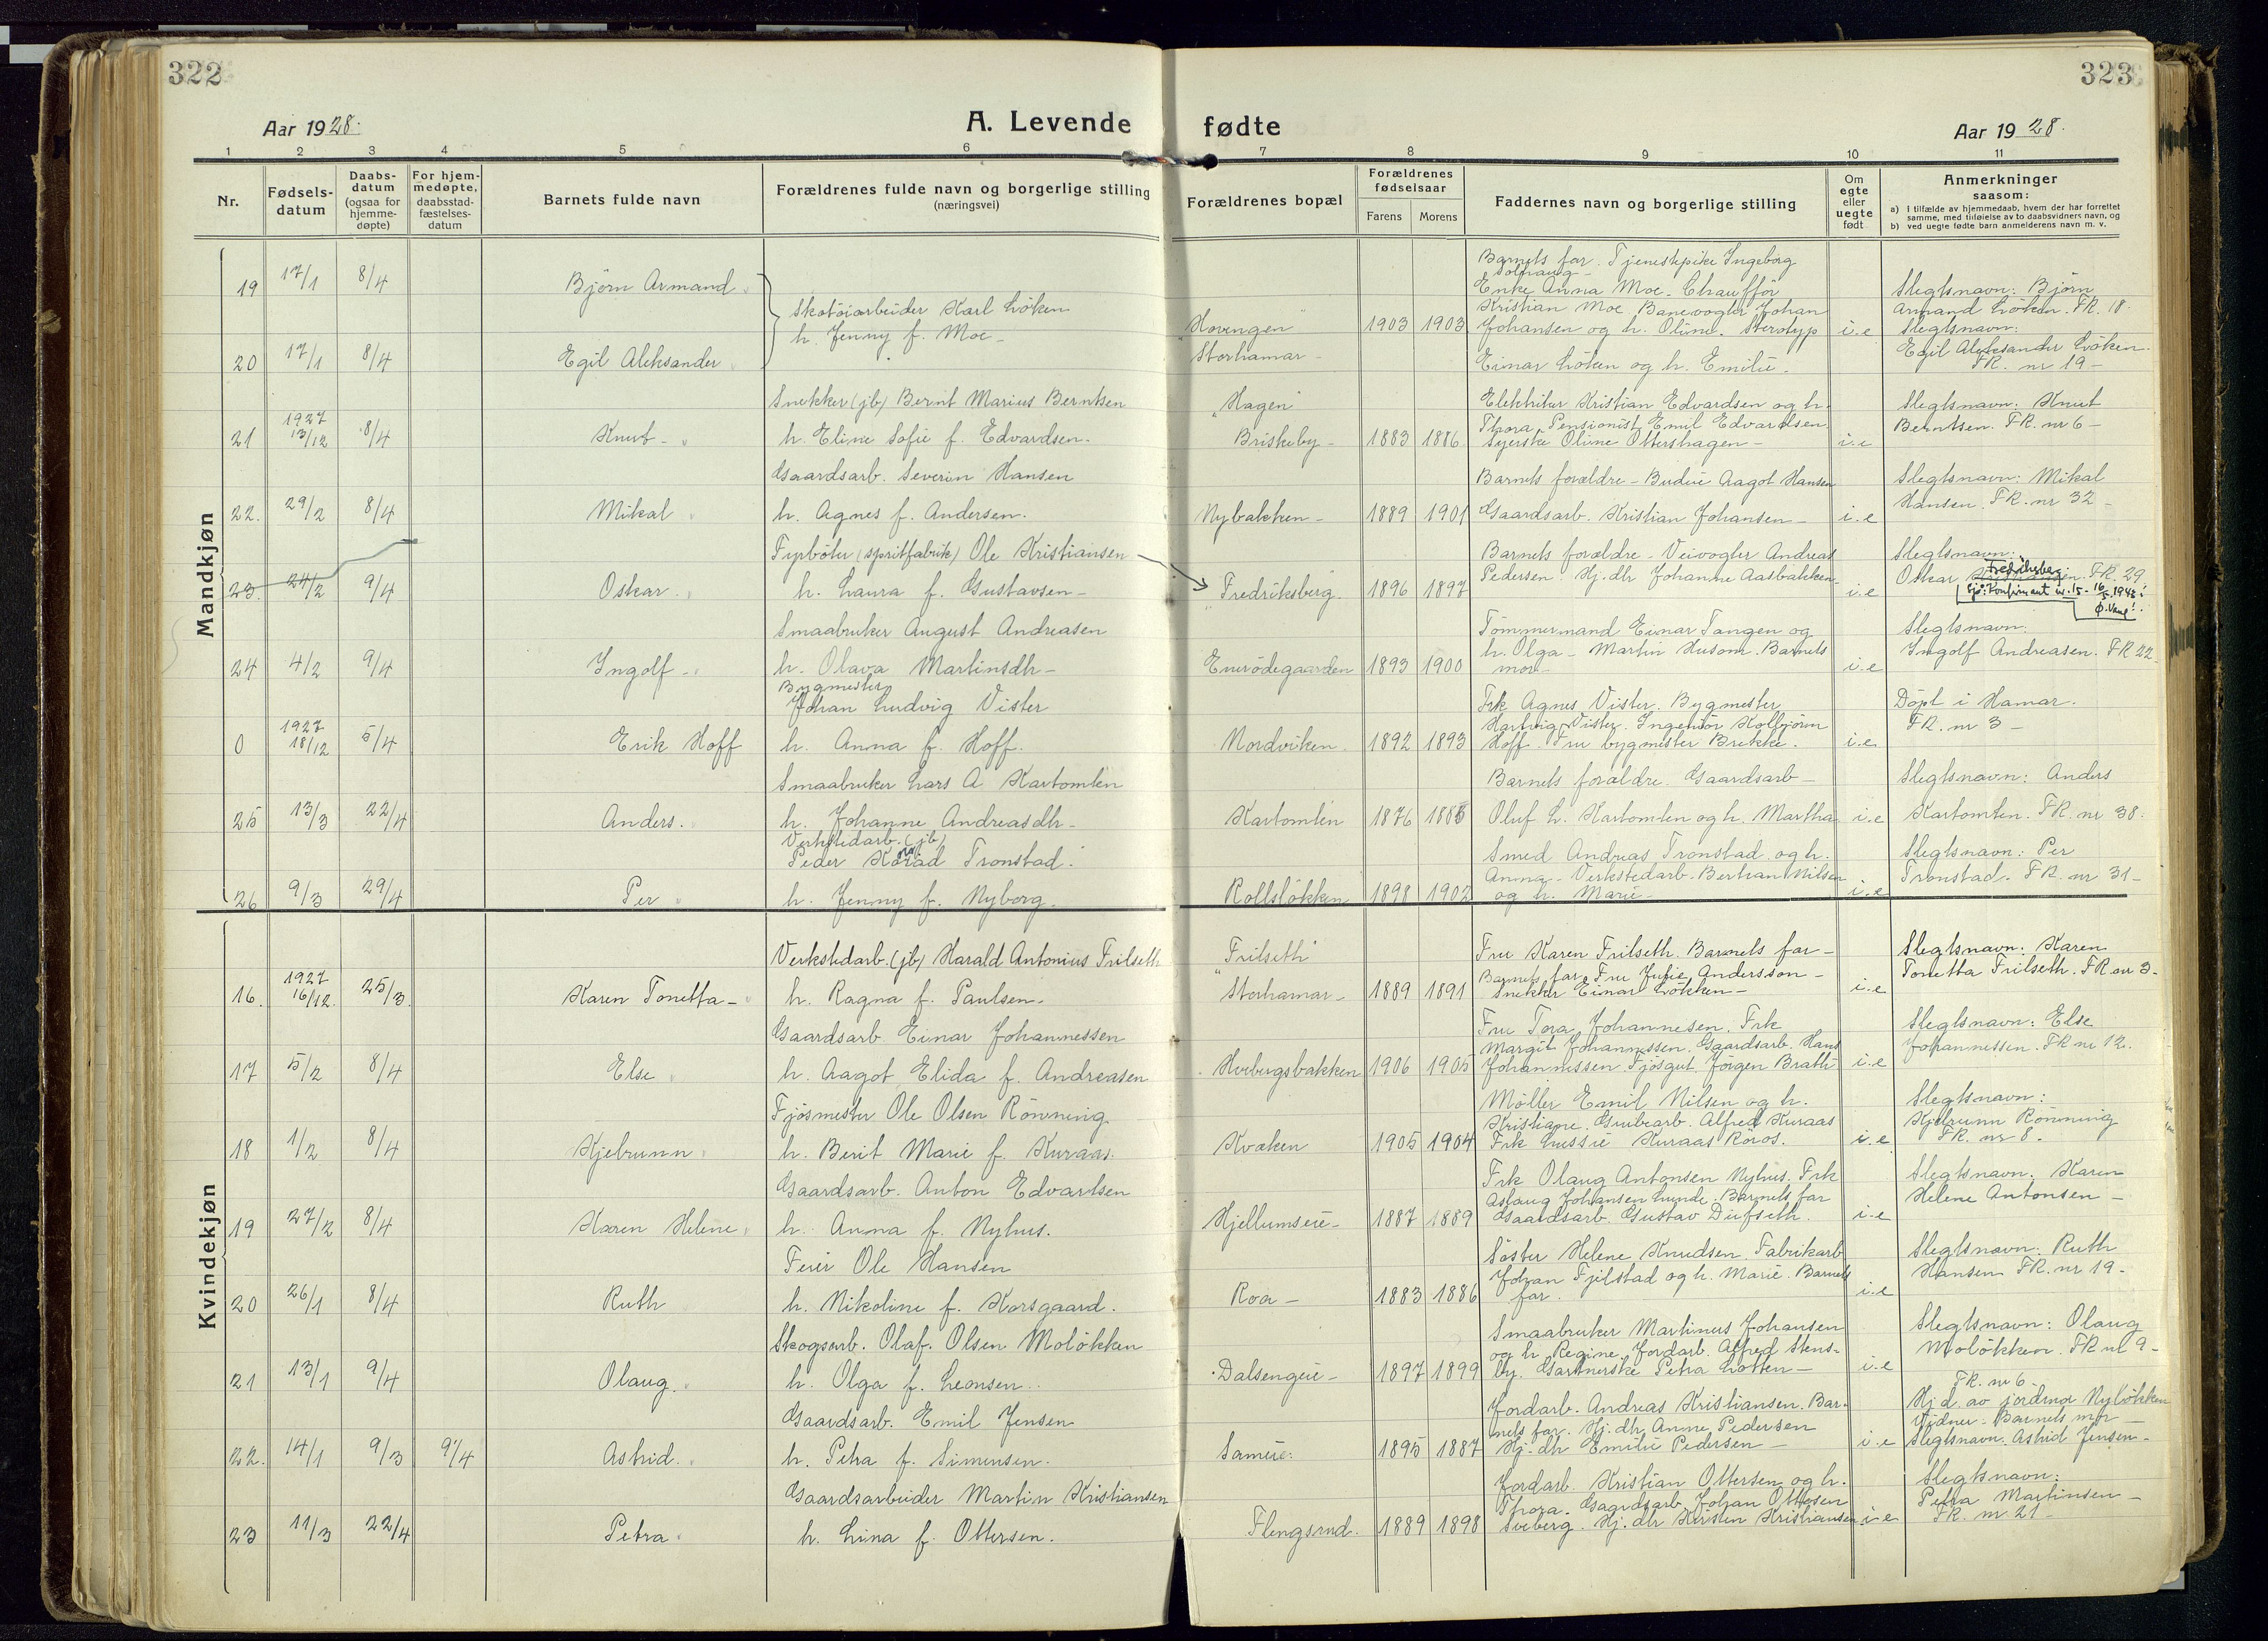 322
323
Aar 1928.
A. Levende
fødte
Aar 1928.
1 2 3 4 5 6 7 8 9 10 11
Nr.
Fødsels-
datum
Daabs-
datum
(ogsaa for
hjemme-
døpte)
For hjem-
medøpte,
daabsstad-
fæstelses-
datum
Barnets fulde navn
Forældrenes fulde navn og borgerlige stilling
(næringsvei)
Forældrenes bopæl
Forældrenes
fødselsaar
Farens Morens
Faddernes navn og borgerlige stilling
Om
egte
eller
uegte
født
Anmerkninger
saasom:
a) i tilfælde av hjemmedaab, hvem der har forrettet
samme, med tilføielse av to daabsvidners navn, og
b) ved uegte fødte barn anmelderens navn m. v.
Mandkjøn
19 17/1 8/4 Bjørn Armand
Skotøiarbeider Karl Løken
h. Jenny f. Moe
"Hovengen"
Storhamar
1903 1903
Barnets far. Tjenestepike Ingeborg
Solhaug
Enke Anna Moe. Chauffør
Kristian Moe Banevogter Johan
Johansen og h. Oline. Sterotyp
i.e
Slegtsnavn: Bjørn
Armand Løken. FR. 18.
20 17/1 8/4 Egil Aleksander
Einar Løken og h. Emilie.
Slegtsnavn:
Egil Aleksander Løken.
FR. nr 19
21 1927 13/12 8/4 Knut
Snekker (jb) Bernt Marius Berntsen
h. Eline Sofie f. Edvardsen.
"Hagen"
Briskeby
1883 1886
Elektriker Kristian Edvardsen og h.
Thora. Pensionist Emil Edvardsen
Syerske Oline Ottershagen
i.e
Slegtsnavn: Knut
Berntsen. FR. nr 6
22. 29/2 8/4 Mikal
Gaardsarb. Severin Hansen
h. Agnes f. Andersen.
Nybakken
1889 1901
Barnets forældre - Budeie Aagot Hansen
Gaardsarb. Kristian Johansen
i.e
Slegtsnavn: Mikal
Hansen. FR. nr 32
23. 24/2 9/4 Oskar
Fyrbøter (spritfabrik) Ole Kristiansen
h. Laura f. Gustavsen
"Fredriksberg
1896 1897
Barnets forældre - Veivogter Andreas
Pedersen. Hj. dtr Johanne Aasbakken
i.e
Slegtsnavn:
Fredriksberg
Oskar Kristiansen. FR. 29
Sjø: Konfirmant nr. 15 - 16/5.1943!
Ø. Vang!
24 4/2 9/4 Ingolf
Smaabruker August Andreasen
h. Olava Martinsdtr
Enerødegaarden
1893 1900
Tømmermand Einar Tangen og
h. Olga - Martin Husom. Barnets
mor
i.e
Slegtsnavn:
Ingolf Andreasen. FR 22.
0 1927 18/12 5/4 Erik Hoff
Bygmester
Johan Ludvig Vister
h. Anna f. Hoff.
Nordviken
1892 1893
Frk Agnes Vister. Bygmester
Hartvig Vister. Ingeniør Kolbjørn
Hoff. Fru bygmester Brekke.
i.e.
Døpt i Hamar.
FR. nr 3
25 13/3 22/4 Anders.
Smaabruker Lars A Kartomten
h. Johanne Andreasdtr
Kartomten
1876 1885
Barnets forældre. Gaardsarb
Oluf L. Kartomten og h. Martha
i.e
Slegtsnavn: Anders
Kartomten. FR. nr 38.
26 9/3 29/4 Per
Verkstedarb. (jb)
Peder Konrad Tronstad.
h. Jenny f. Nyborg.
Rollsløkken
1898 1902
Smed Andreas Tronstad og h.
Anna - Verkstedarb. Bertran Nilsen
og h. Marie
i.e
Slegtsnavn: Per
Tronstad. FR. nr 31
Kvindekjøn
16. 1927 16/12 25/3. Karen Tonetta
Verkstedarb. (jb) Harald Antonius Frilseth
h. Ragna f. Paulsen.
"Frilseth"
Storhamar
1889 1891
Fru Karen Frilseth. Barnets far
Barnets far. Fru Julie Andersson
Snekker Einar Løkken
i.e
Slegtsnavn: Karen
Tonetta Frilseth. FR nr 3
17 5/2 8/4 Else
Gaardsarb Einar Johannessen
h. Aagot Elida f. Andreasen
Hvebergsbakken
1906 1905
Fru Tora Johannesen. Frk
Margit Johannessen. Gaardsarb. Hans
Johannessen Fjøsgut Jørgen Brath
i.e
Slegtsnavn: Else
Johannessen. FR nr 12.
18 1/2 8/4 Kjelrunn
Fjøsmester Ole Olsen Rønning
h. Berit Marie f. Kuraas.
Kvæken
1905 1904
Møller Emil Nilsen og h.
Kristiane. Grubearb. Alfred Kuraas
Frk Lussie Kuraas Røros.
i.e
Slegtsnavn:
Kjelrunn Rønning
FR. nr 8.
19 27/2 8/4 Karen Helene
Gaardsarb. Anton Edvartsen
h. Anna f. Nyhus.
Hjellumseie
1887 1889
Frk Olaug Antonsen Nyhus. Frk
Aslaug Johansen Lunde. Barnets far
Gaardsarb. Gustav Dufseth.
i.e
Slegtsnavn: Karen
Helene Antonsen
20 26/1 8/4 Ruth
Feier Ole Hansen
h. Nikoline f. Korsgaard.
Roa
1883 1886
Søster Helene Knudsen Fabrikarb
Johan Fjelstad og h. Marie. Barnets
far.
i.e
Slegtsnavn: Ruth
Hansen FR. nr 19
21 13/1 9/4 Olaug.
Skogsarb. Olaf Olsen Moløkken
h. Olga f. Leonsen.
Dalsengeie
1897 1899
Smaabruker Martinus Johansen
og h Regine. Jordarb. Alfred Stens-
by. Gartnerske Petra Lotten
i.e
Slegtsnavn: Olaug
Moløkken. FR nr 9
22. 14/1 9/3 9/4 Astrid.
Gaardsarb. Emil Jensen
h. Petra f. Simensen.
Sameie.
1895 1887
Jordarb. Andreas Kristiansen. Bar-
nets far. Hj. dtr. Anne Pedersen
Hj. dtr Emilie Pedersen
i.e
FR. nr 6
Hj d. av jordmor Nyløkken
Vidner. Barnets mor
Slegtsnavn: Astrid Jensen
23 11/3 22/4 Petra
Gaardsarbeider Martin Kristiansen
h. Lina f. Ottersen.
Flengsrud.
1889 1898
Jordarb. Kristian Ottersen og h.
Thora. Gaardsarb. Johan Ottesen
Sveberg. Hj. dtr Kristen Kristiansen
i.e
Slegtsnavn:
Petra Martinsen
FR. nr 21